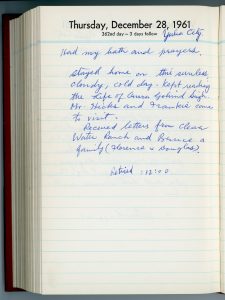 Thursday, December 28, 1961
362nd day – 3 days follow
Yuba City.
Had my bath and prayers.
Stayed home on this sunless
cloudy, cold day. Kept reading
the Life of Guru Gobind Singh.
Mr Hecks and Frankie came
to visit.
Received letters from Clear
Water Ranch and Bernice &
family (Florence & Douglas).
Retired :12:00